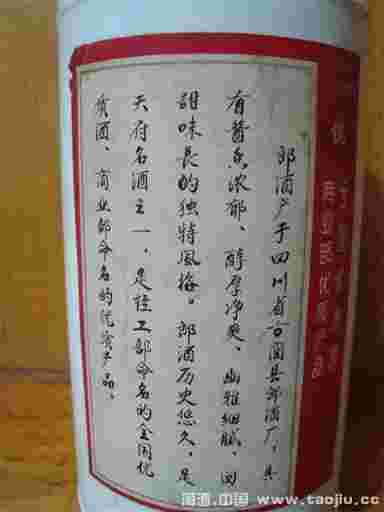 商业部优质产品
郎酒产于四川省古蔺县郎酒厂，具
有酱香浓郁、醇厚净爽、幽雅细腻、回
甜味长的独特風格。郎酒历史悠久，是
天府名酒之一，是轻工部命名的全国优
质酒、商业部命名的优质产品。
国酒.中国 www.taojiu.cc